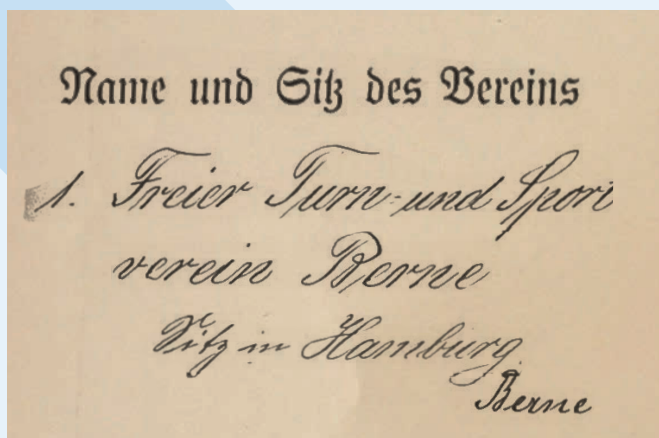 Name und Sitz des Vereins
1. Freier Turn- und Sport
verein Berne
Sitz in Hamburg
Berne